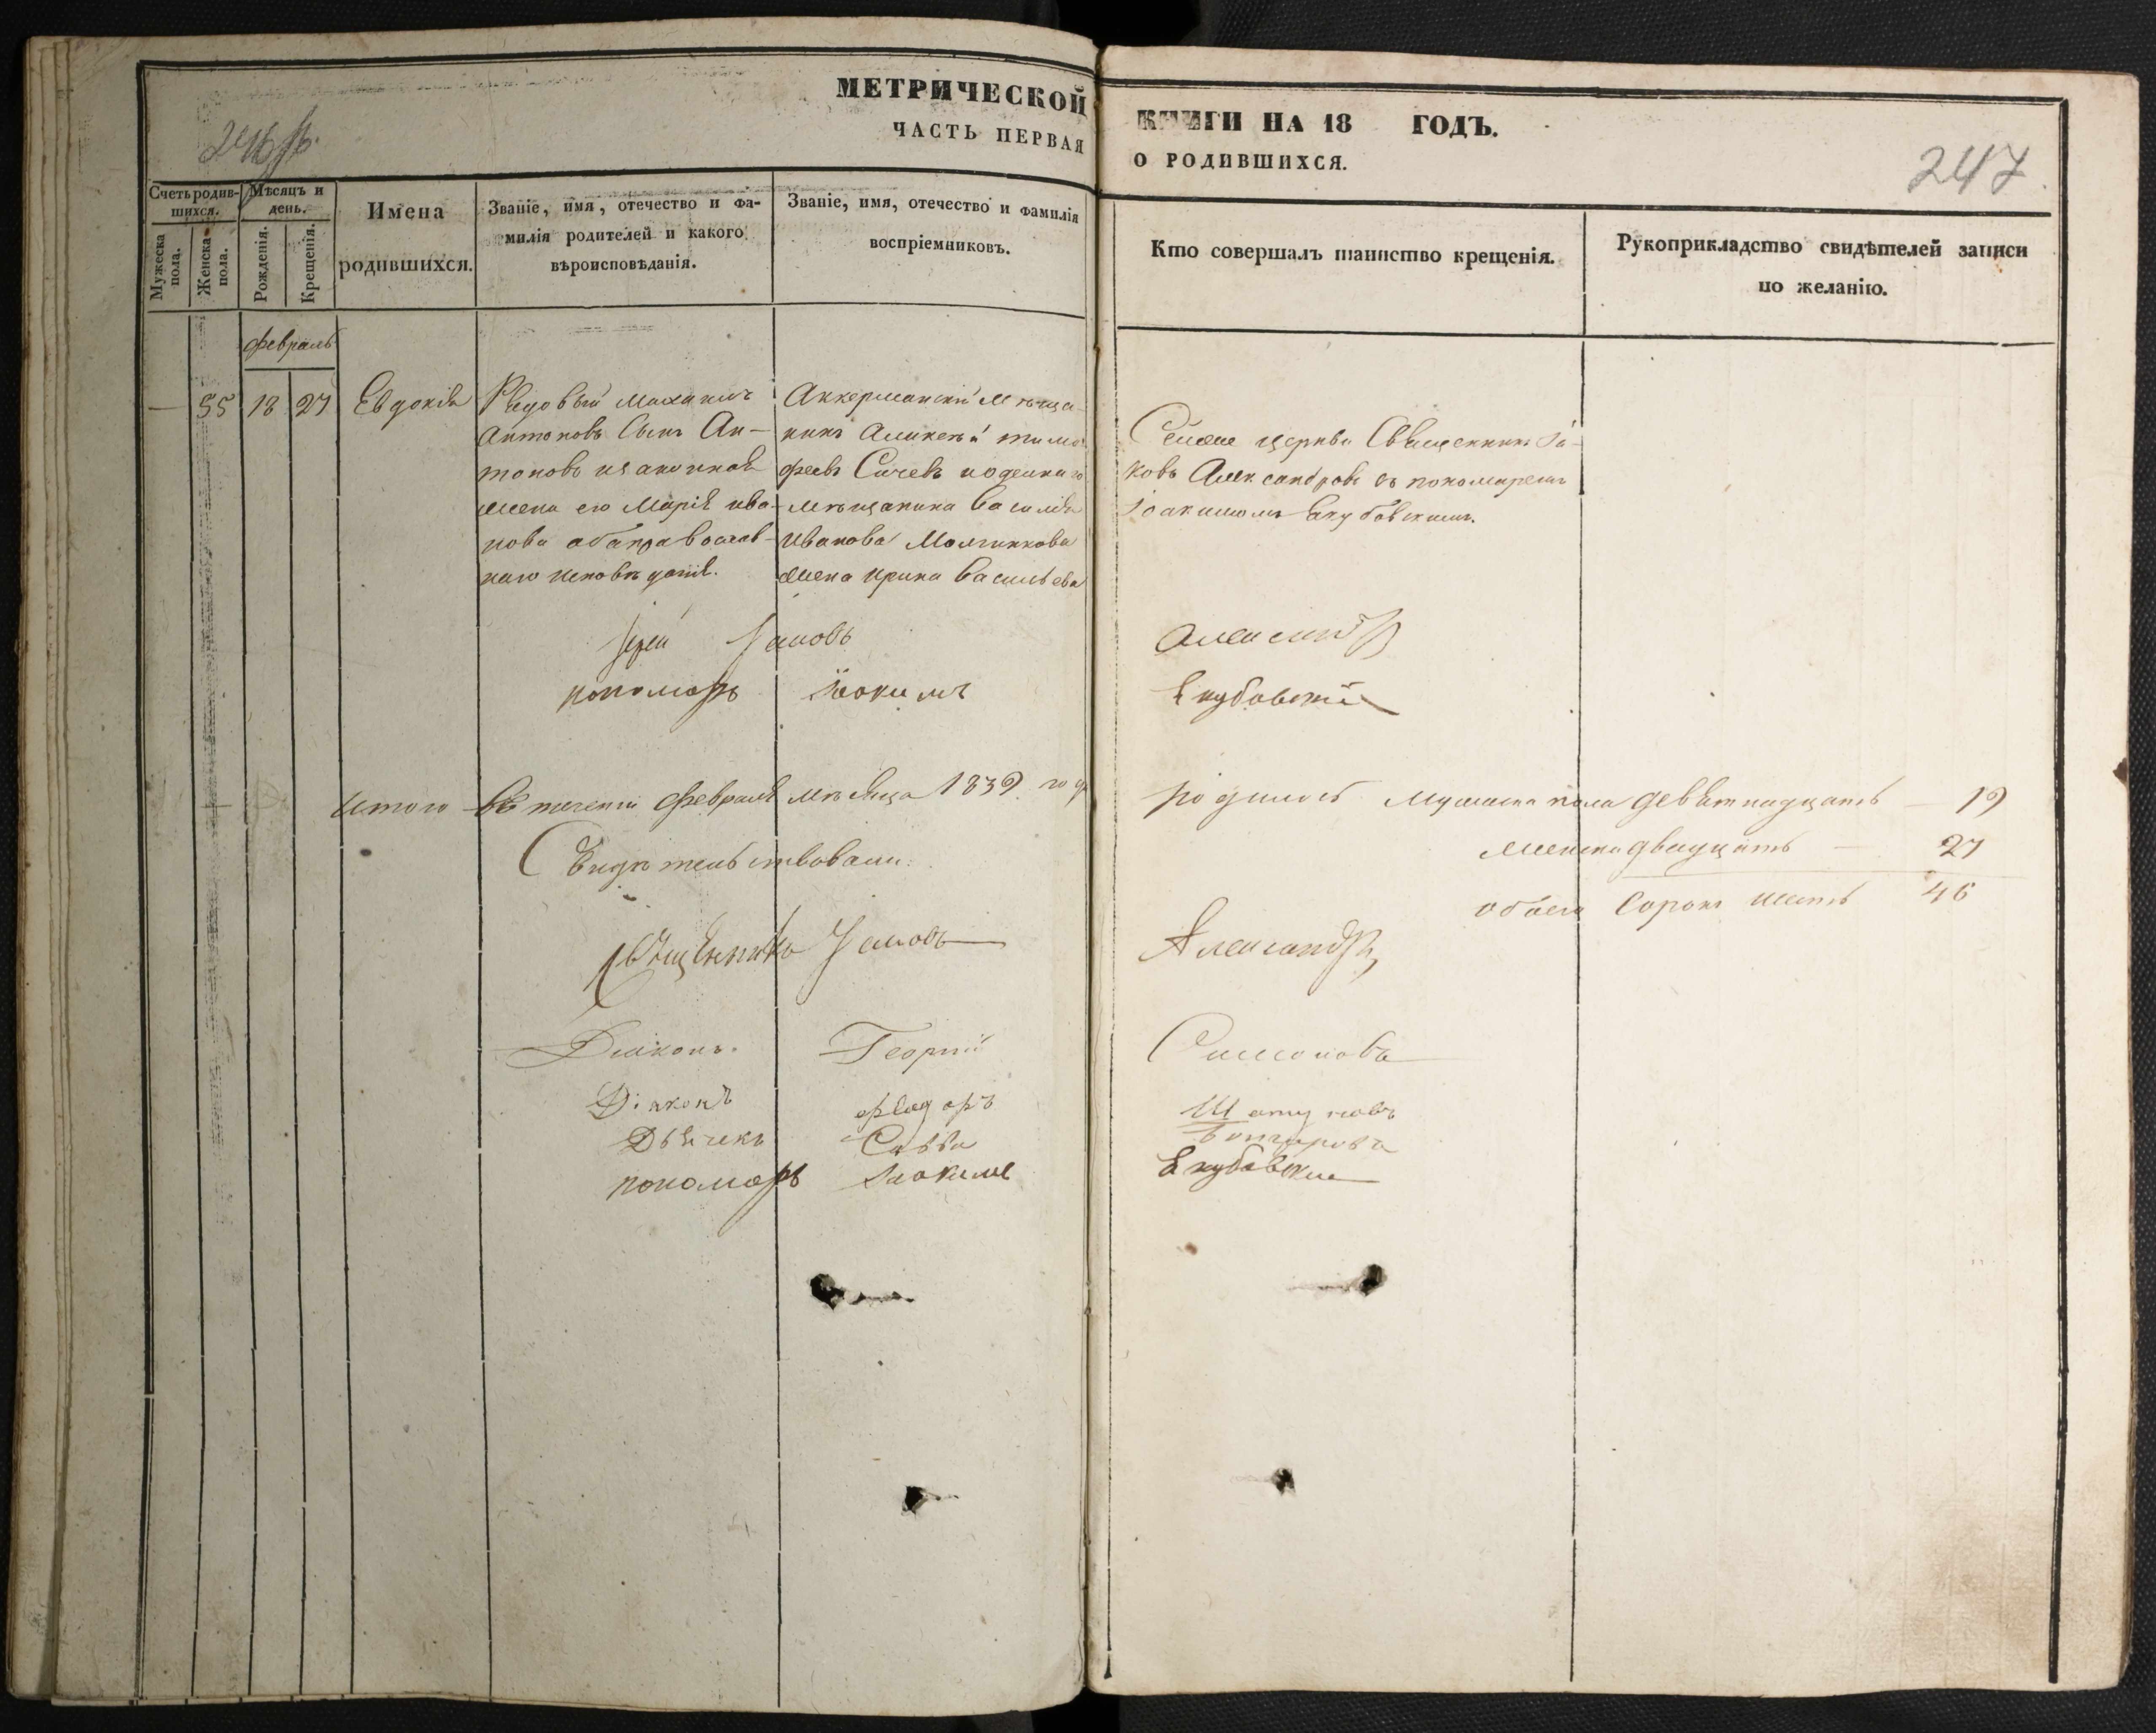 МЕТРИЧЕСКОЙ КНИГИ НА 18 ГОДЪ.
ЧАСТЬ ПЕРВАЯ О РОДИВШИХСЯ.
247
Счетъ родив-
шихся.
Мужеска пола.
Женска пола.
Мѣсяцъ и
день.
Рожденія.
Крещенія.
Имена
родившихся.
Званіе, имя, отечество и фа-
милія родителей и какого
вѣроисповѣданія.
Званіе, имя, отечество и фамилія
воспріемниковъ.
Кто совершалъ таинство крещенія.
Рукоприкладство свидѣтелей записи
по желанію.
февраль
— 55 18 27 Евдокія
Рядовый
Антоновъ Сынъ Ан-
тоновъ
жена его Марія ива-
нова оба православ-
наго исповѣданія.
Аккерманскій мѣща-
нинъ Алексѣй тимо
феевъ Сычевъ и
мѣщанина Василія
Иванова
жена ирина Васильева
Сеяже церкви Священникъ Іа-
ковъ Александровъ съ пономаремъ
Іоакимомъ Якубовскимъ.
Іерей Іаковъ Александр
пономарь Іоакимъ Якубовскій
Итого въ теченіи февраля мѣсяца 1839 года родилось мужеска пола девятнадцать — 19
женска двадцать — 27
обоего Сорокъ шесть 46
Свидѣтельствовали:
Священникъ Іаковъ Александр
Діаконъ Георгій Симоновъ
Діаконъ Федоръ
Дьячекъ Савва
пономарь Іоакимъ Якубовскій